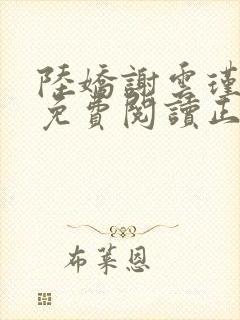 陸嬌謝雲瑾
免費閱讀正
布萊恩